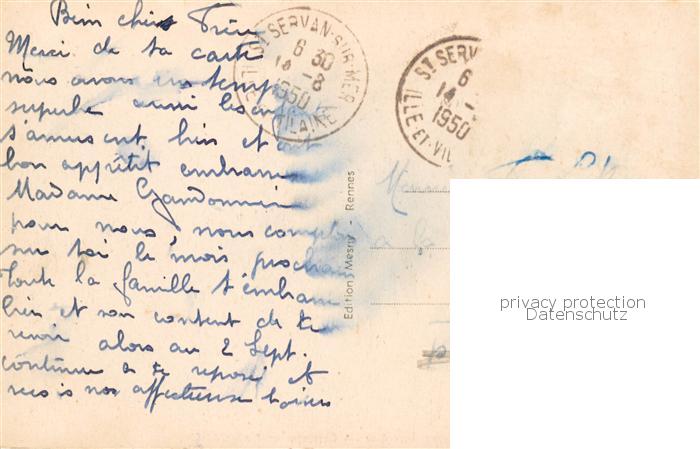 Bien cher Frère
Merci de ta carte
nous avons un temps
superbe aussi les enf
s'amusent bien et ont
bon appétit embrasse
Madame
pour nous nous compt
sur toi le mois prochain
Toute la famille t'embrasse
bien et son content de te
revoir alors au 2 Sept.
continue a te reposé et
reçois nos affectueux baisers
ST SERVAN-SUR-MER
6 30
14 -8
1950
ILLE
ILAINE
ST SERV
6
14 -
1950
ILLE-ET-VIL
Editions Mesny - Rennes
privacy protection
Datenschutz